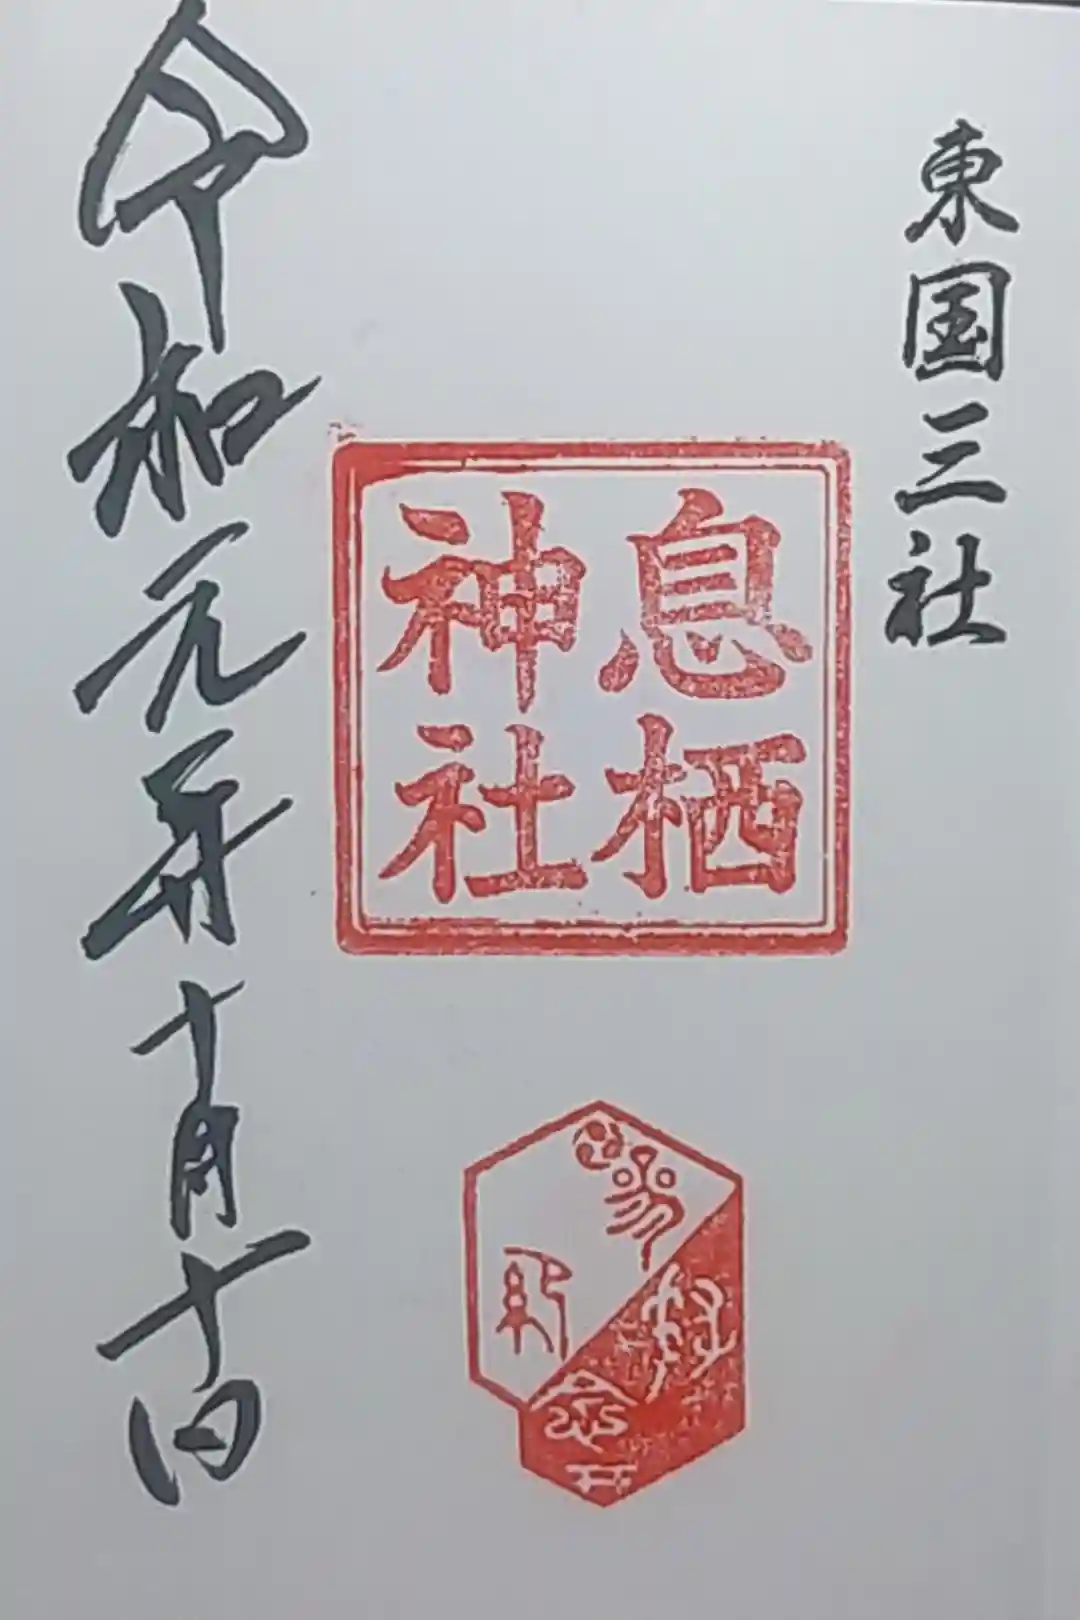 東国三社
息栖
神社
令和元年十月十日